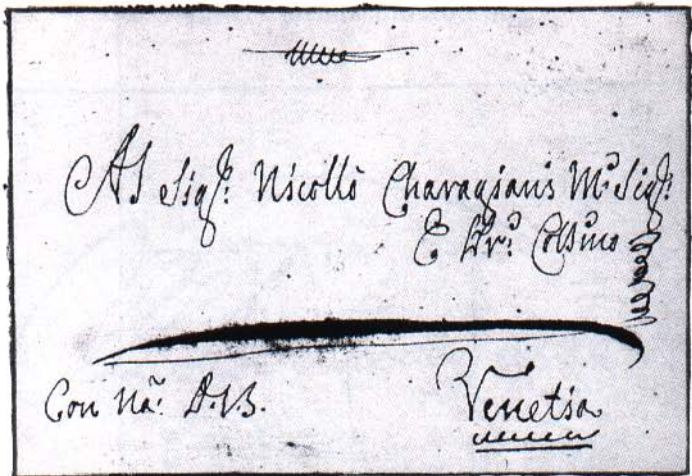 Al Sig.r Nicollò Charagianis M.o Sig.r
E Pr.o Coll.mo
Con Na: D.V.B.
Venetia